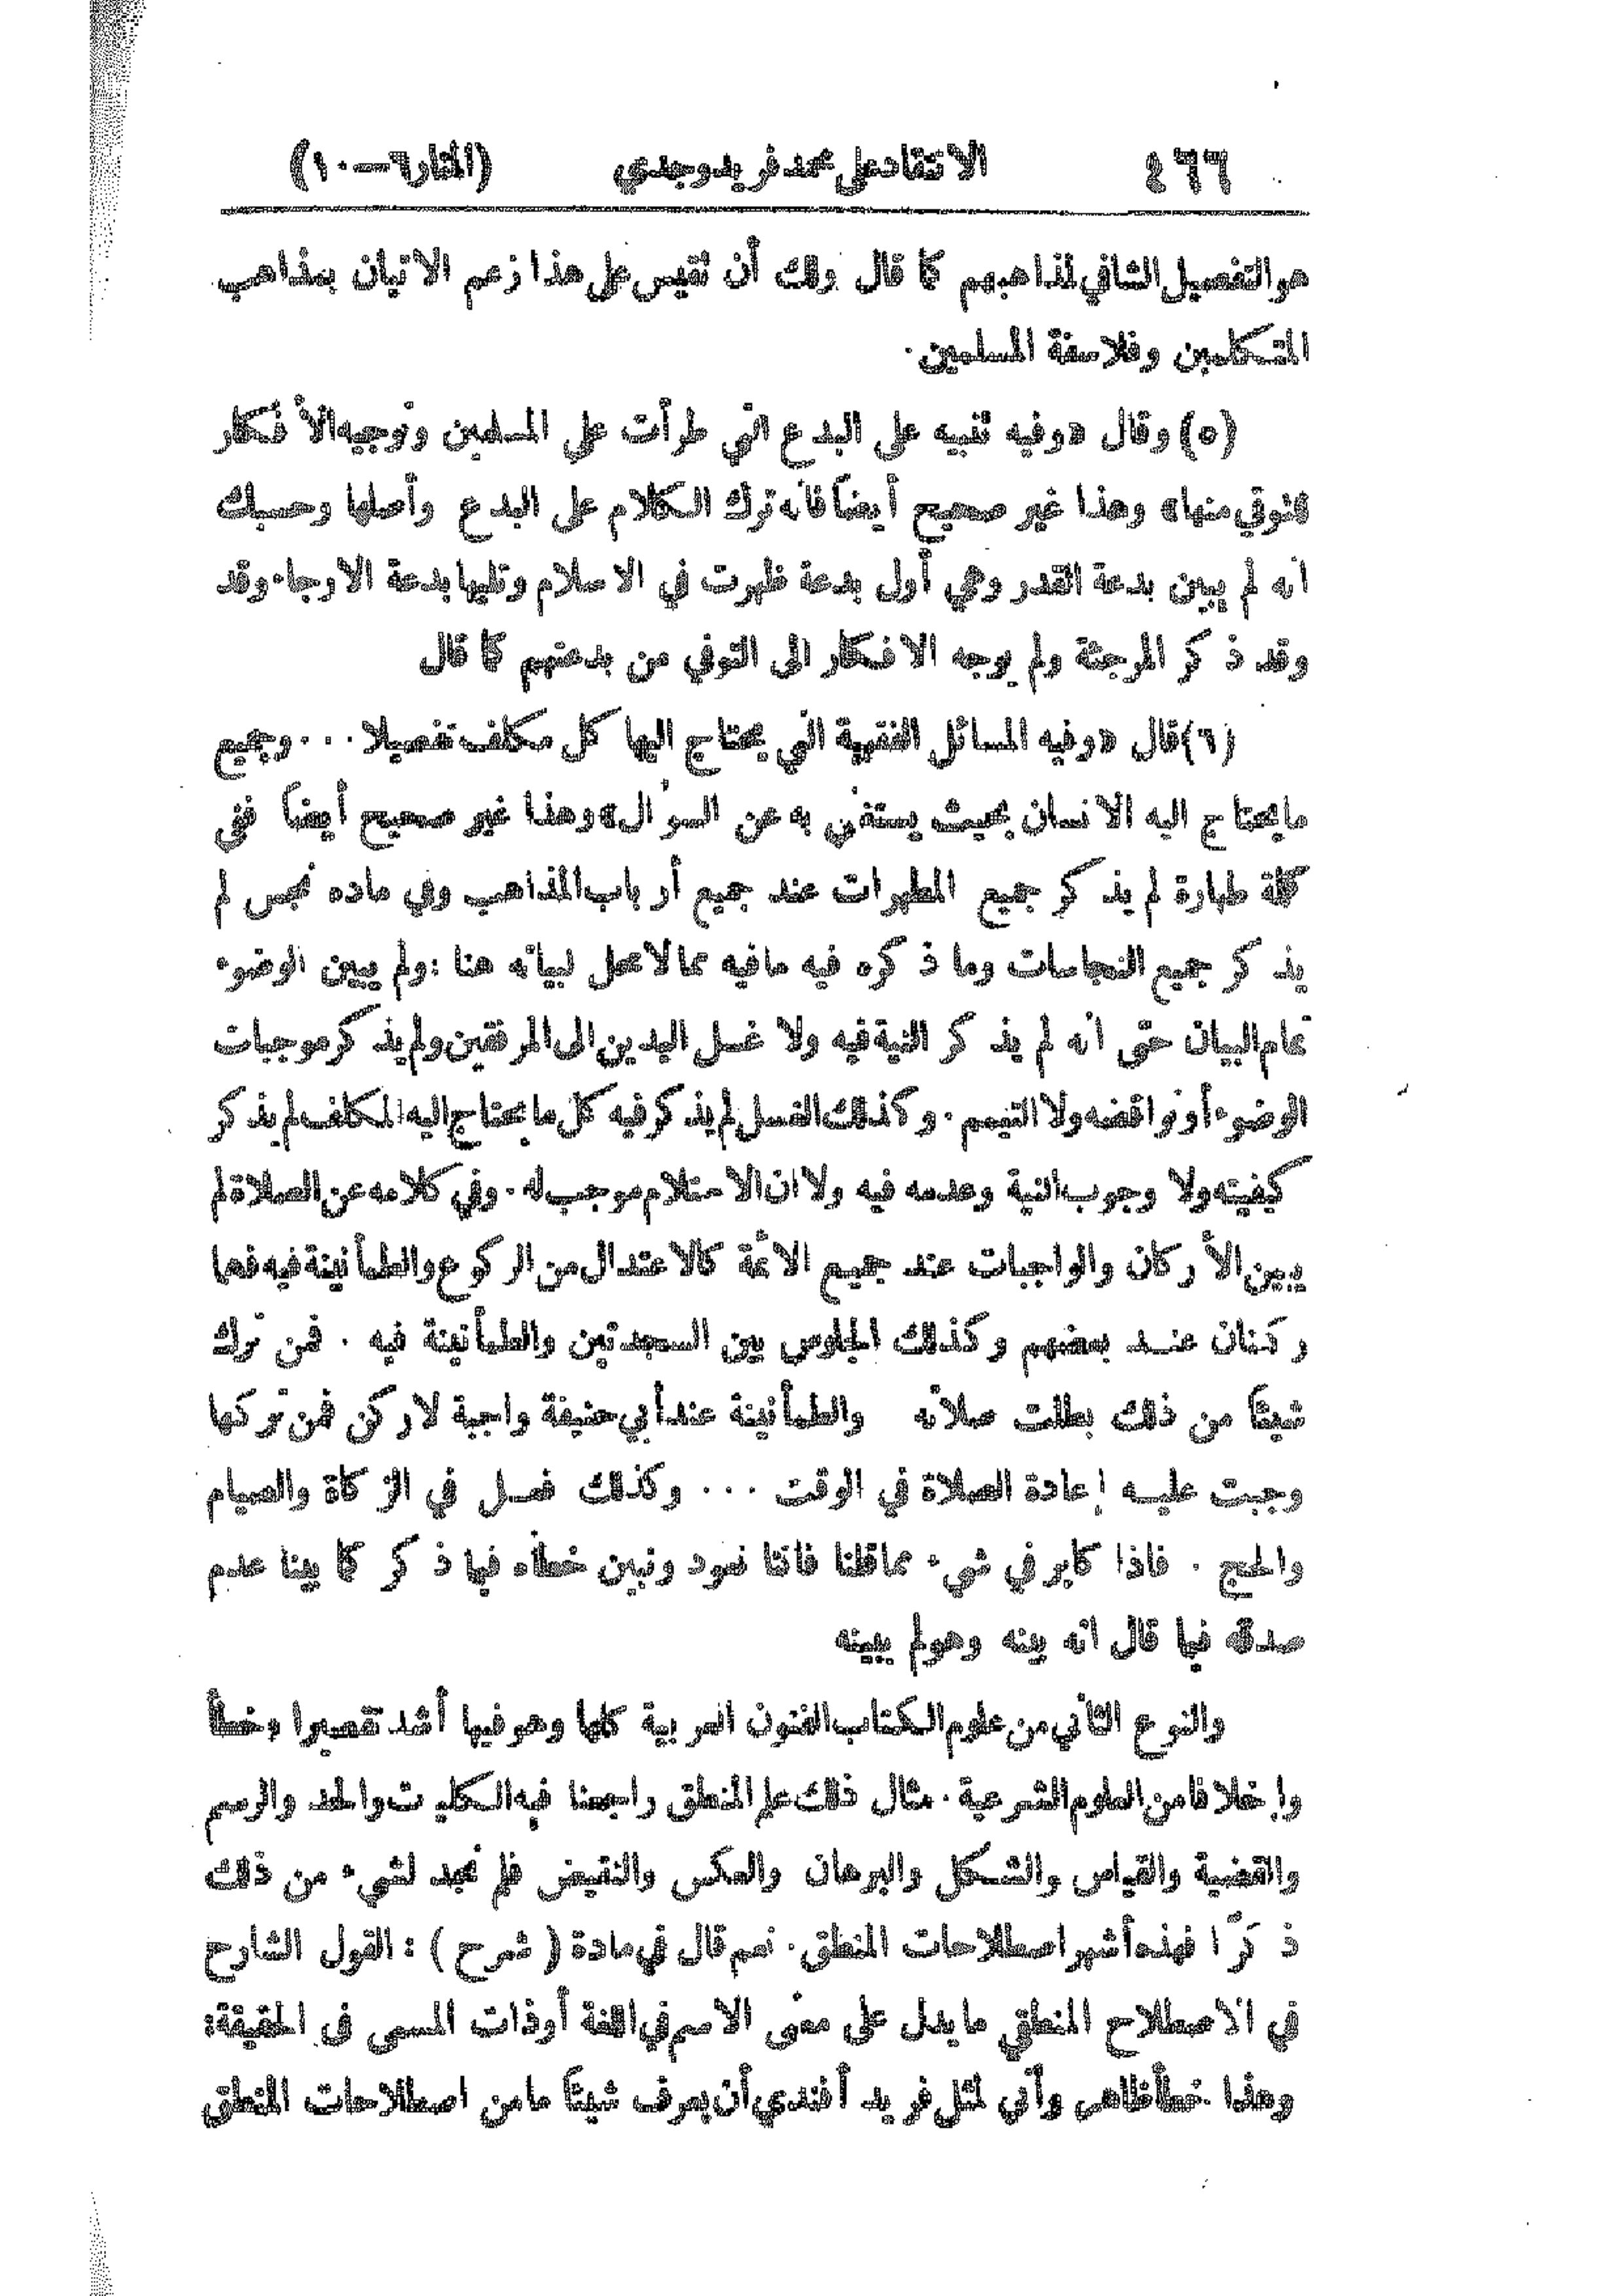 ٤٦٦ الانتقاد على محمد فريد وجدي (المنار٦—١٠)
هو التفصيل الشافي لمذاهبهم كما قال ولك أن تقيس على هذا زعم الاتيان بمذاهب
المتكلمين وفلاسفة المسلمين.
(٥) وقال «وفيه تنبيه على البدع التي طرأت على المسلمين وتوجيه الأفكار
للتوقي منها» وهذا غير صحيح أيضاً فانه ترك الكلام على البدع وأصلها وحسبك
انه لم يبين بدعة القدر وهي أول بدعة ظهرت في الاسلام وتليها بدعة الارجاء وقد
وقد ذكر المرجئة ولم يوجه الافكار الى التوقي من بدعتهم كما قال
(٦) قال «وفيه المسائل الفقهية التي يحتاج اليها كل مكلف تفصيلا . . . وجميع
ما يحتاج اليه الانسان بحيث يستغني به عن السؤال» وهذا غير صحيح أيضاً ففي
كلمة طهارة لم يذكر جميع المطهرات عند جميع أرباب المذاهب وفي ماده نجس لم
يذكر جميع النجاسات وما ذكره فيه مافيه مما لا محل لبيانه هنا : ولم يبين الوضوء
تمام البيان حتى انه لم يذكر النية فيه ولا غسل اليدين الى المرفقين ولم يذكر موجبات
الوضوء أو نواقضه ولا التيمم . وكذلك الغسل لم يذكر فيه كل ما يحتاج اليه المكلف لم يذكر
كيفيته ولا وجوب النية وعدمه فيه ولا ان الاحتلام موجب له . وفي كلامه عن الصلاة لم
يبين الأركان والواجبات عند جميع الائمة كالاعتدال من الركوع والطمأنينة فيه فهما
ركنان عند بعضهم وكذلك الجلوس بين السجدتين والطمأنينة فيه . فمن ترك
شيئاً من ذلك بطلت صلاته والطمأنينة عند أبي حنيفة واجبة لا ركن فمن تركها
وجبت عليه إعادة الصلاة في الوقت . . . وكذلك فعل في الزكاة والصيام
والحج . فاذا كابر في شيء مما قلنا فاننا نعود ونبين خطأه فيما ذكر كما بينا عدم
صدقه فيما قال انه بينه وهو لم يبينه
والنوع الثاني من علوم الكتاب الفنون العربية كلها وهو فيها أشد تقصيرا وخطأ
وإخلافا من العلوم الشرعية . مثال ذلك علم المنطق راجعنا فيه الكليات والحد والرسم
والقضية والقياس والشكل والبرهان والعكس والنقيض فلم نجد لشيء من ذلك
ذكرًا فهذه أشهر اصطلاحات المنطق . نعم قال في مادة ( شرح ) : القول الشارح
في الاصطلاح المنطقي ما يدل على معنى الاسم في اللغة أو ذات المسمى في الحقيقة:
وهذا خطأ ظاهر وأنى لمثل فريد أفندي أن يعرف شيئاً ما من اصطلاحات المنطق